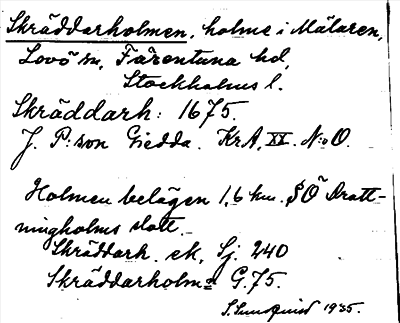 Skräddarholmen, holme i Mälaren,
Lovö sn, Färentuna hd,
Stockholms l.
Skräddarh: 1675.
J. P:son Giedda. KrA, XX. N:o O.
Holmen belägen 1,6 km. SÖ Drott-
ningholms slott.
Skräddarh. ek, Sj. 240
Skräddarholm= G.75.
S. Sundquist 1935.